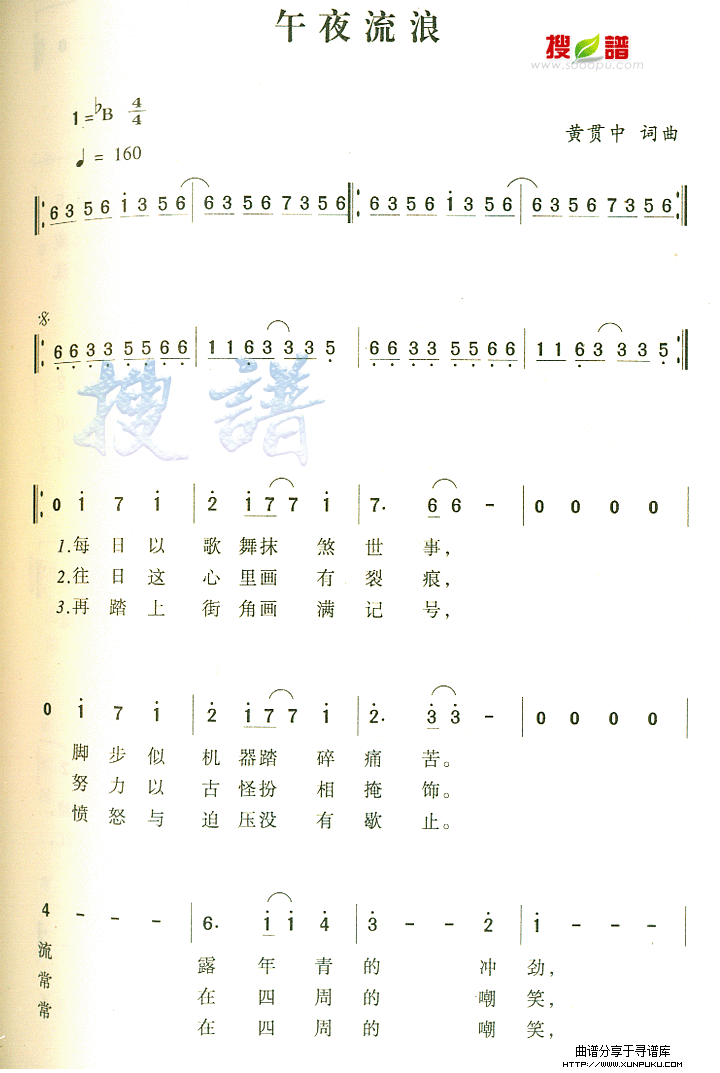 午夜流浪
搜谱
www.sooopu.com
1=♭B 4/4
♩= 160
黄贯中 词曲
6356i356 | 63567356 | 6356i356 | 63567356
66335566 | 1163335 | 66335566 | 1163335
搜谱
0 i 7 i | 2 i77 i | 7. 66 - | 0 0 0 0
1.每日以 歌舞抹 煞世事,
2.往日这 心里画 有裂痕,
3.再踏上 街角画 满记号,
0 i 7 i | 2 i77 i | 2. 33 - | 0 0 0 0
脚步似 机器踏 碎痛苦。
努力以 古怪扮 相掩饰。
愤怒与 迫压没 有歇止。
4 - - - | 6. ii 4 | 3 - - 2 | i - - -
流 露年青的 冲劲,
常 在四周的 嘲笑,
常 在四周的 嘲笑,
曲谱分享于寻谱库
HTTP://WWW.XUNPUKU.COM